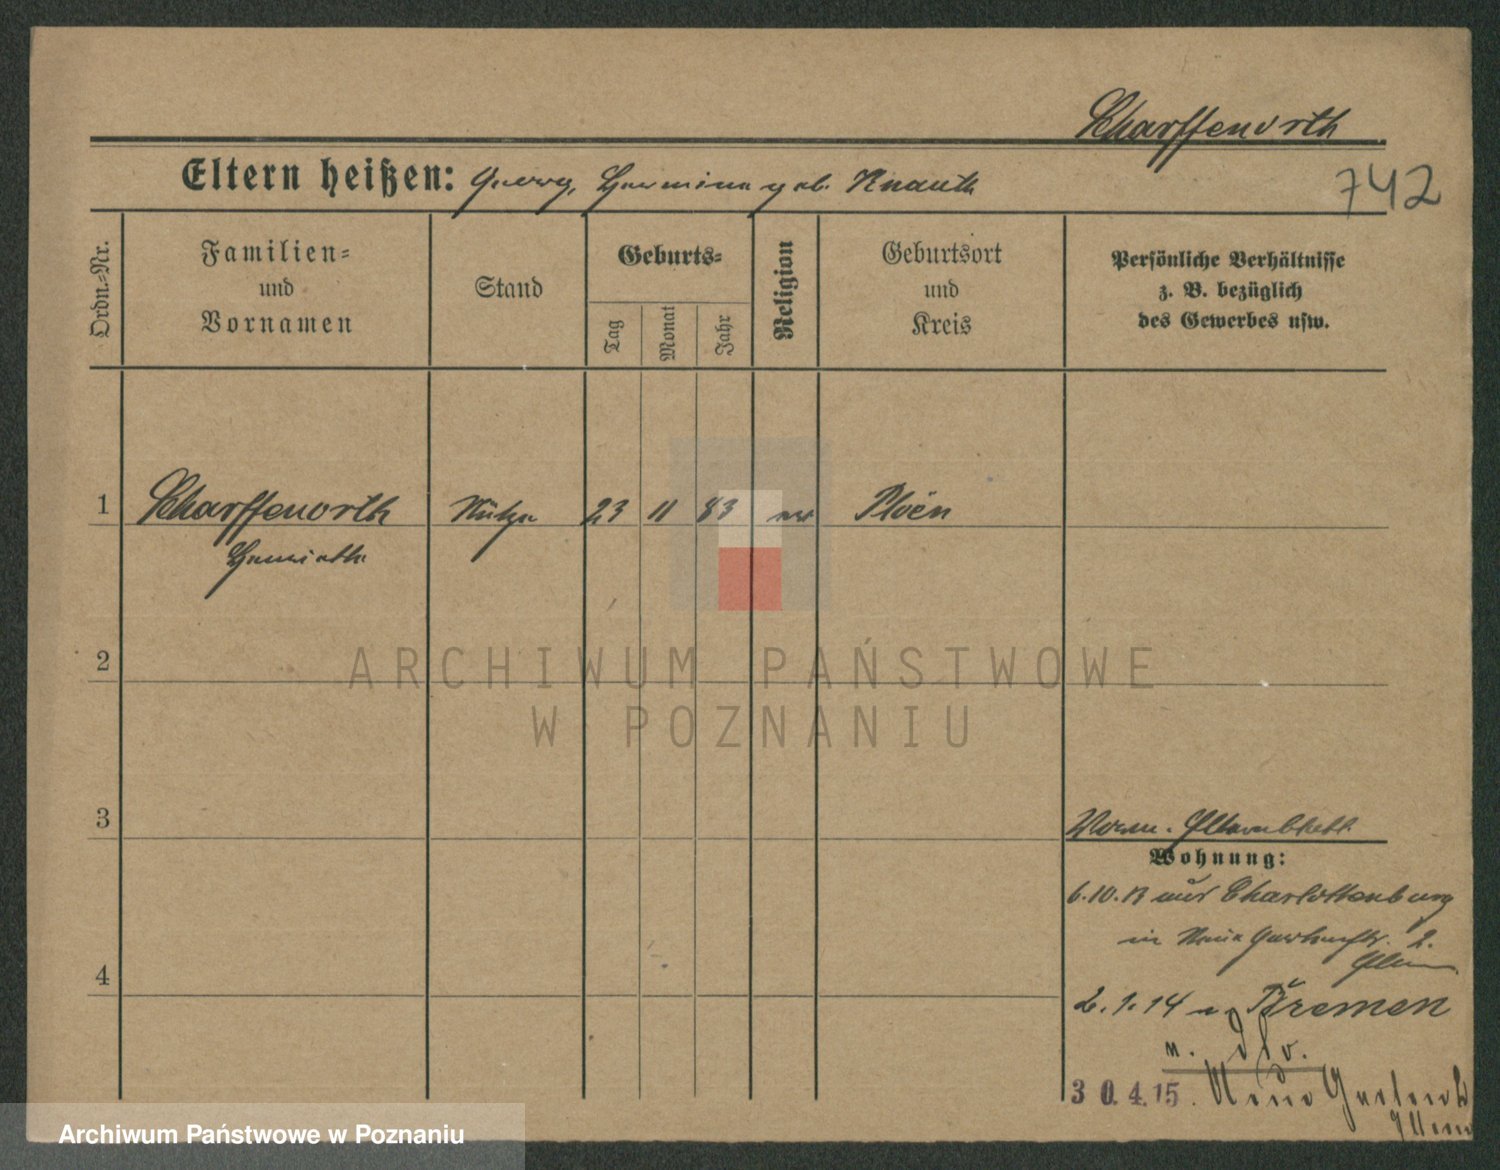 Scharffenorth
Eltern heißen: Georg, Hermine geb. Knauth
742
Ordn.-Nr.
Familien-
und
Vornamen
Stand
Geburts-
Tag
Monat
Jahr
Religion
Geburtsort
und
Kreis
Persönliche Verhältnisse
z. B. bezüglich
des Gewerbes usw.
1 Scharffenorth 23 11 83 Ploën
Henriette
2
ARCHIWUM PAŃSTWOWE
W POZNANIU
3
Wohnung:
6.10.13 aus Charlottenburg
in Neue 2.
4
2.1.14 n. Bremen
n.
30.4.15. Neue
Archiwum Państwowe w Poznaniu